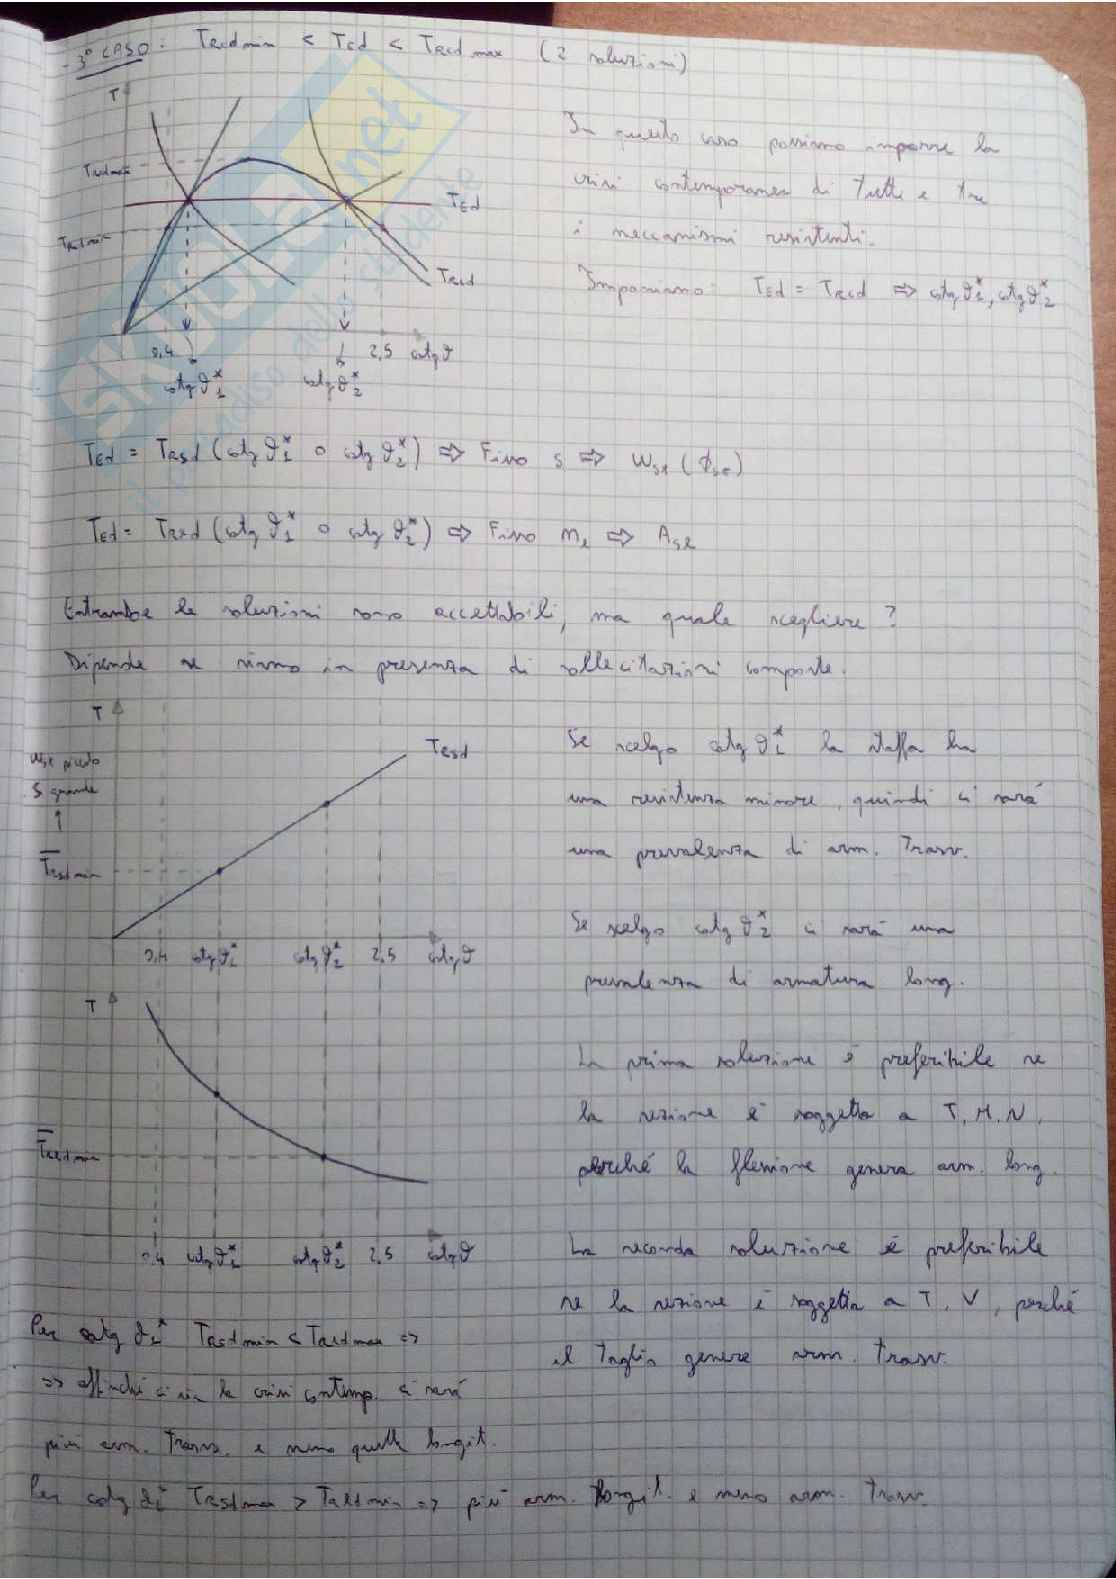 - 3° CASO: TRcd min < TEd < TRcd max (2 soluzioni)
T
TRcd max
TRcd min
TEd
TRcd
0,4 2,5 cotg ϑ
cotg ϑ1* cotg ϑ2*
In questo caso possiamo imporre la
crisi contemporanea di tutti e tre
i meccanismi resistenti.
Imponiamo: TEd = TRcd ⇒ cotg ϑ1*, cotg ϑ2*
TEd = TRsd (cotg ϑ1* o cotg ϑ2*) ⇒ Fisso s ⇒ ωst (ϕst)
TEd = TRld (cotg ϑ1* o cotg ϑ2*) ⇒ Fisso nl ⇒ Asl
Entrambe le soluzioni sono accettabili, ma quale scegliere?
Dipende se siamo in presenza di sollecitazioni composte.
T
ωst piccolo
s grande
↑
TRsd min
TRsd
0,4 cotg ϑ1* cotg ϑ2* 2,5 cotg ϑ
Se scelgo cotg ϑ1* la staffa ha
una resistenza minore, quindi ci sarà
una prevalenza di arm. Trasv.
Se scelgo cotg ϑ2* ci sarà una
prevalenza di armatura long.
T
TRld min
0,4 cotg ϑ1* cotg ϑ2* 2,5 cotg ϑ
La prima soluzione è preferibile se
la sezione è soggetta a T, M, N,
perché la flessione genera arm. long.
La seconda soluzione è preferibile
se la sezione è soggetta a T, V, perché
il Taglio genera arm. trasv.
Per cotg ϑ1* TRsd min < TRld max ⇒
⇒ affinché ci sia la crisi contemp. ci sarà
più arm. Trasv. e meno quella longit.
Per cotg ϑ2* TRsd max > TRld min ⇒ più arm. longit. e meno arm. trasv.
SKUOLA.net
il paradiso dello studente